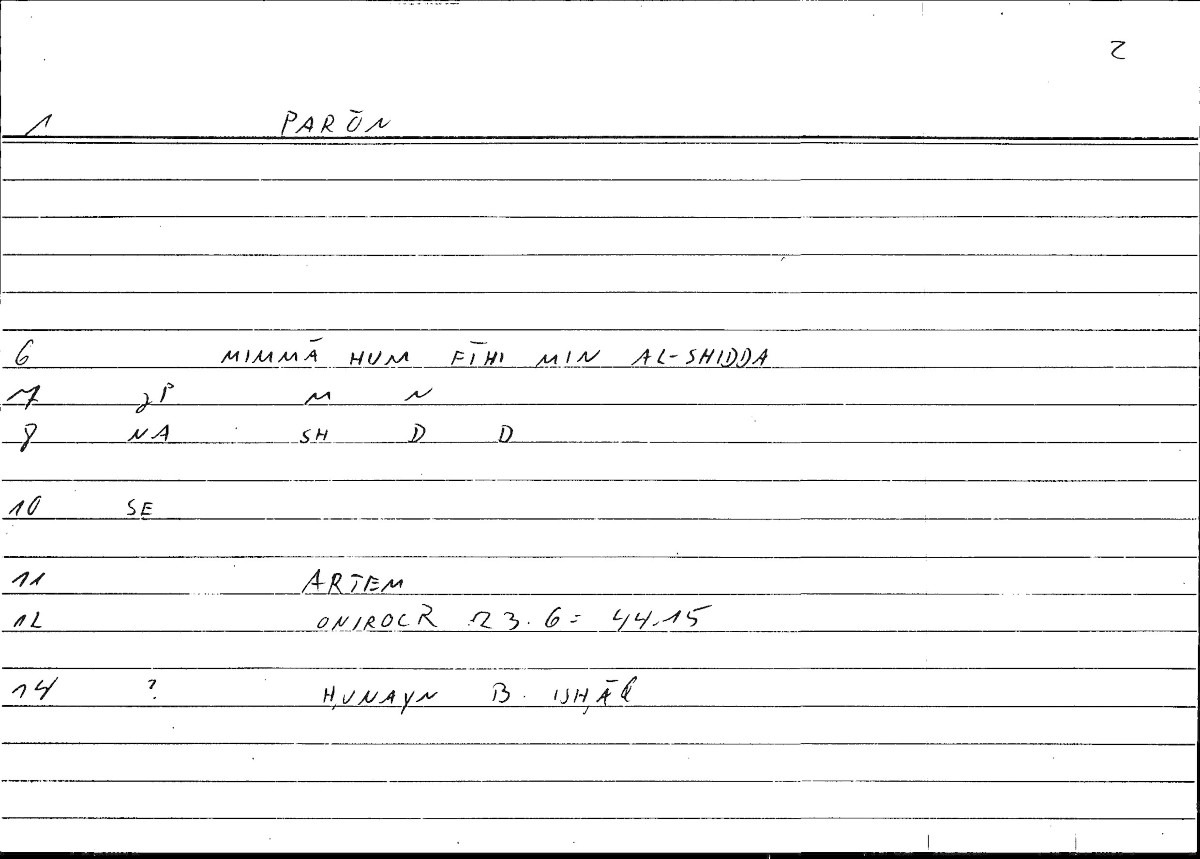 2
1 PARŌN
6 MIMMĀ HUM FĪHI MIN AL-SHIDDA
7 gP M N
8 NA SH D D
10 SE
11 ARTEM
12 ONIROCR 23.6= 44.15
14 ? ḤUNAYN B. ISḤĀQ